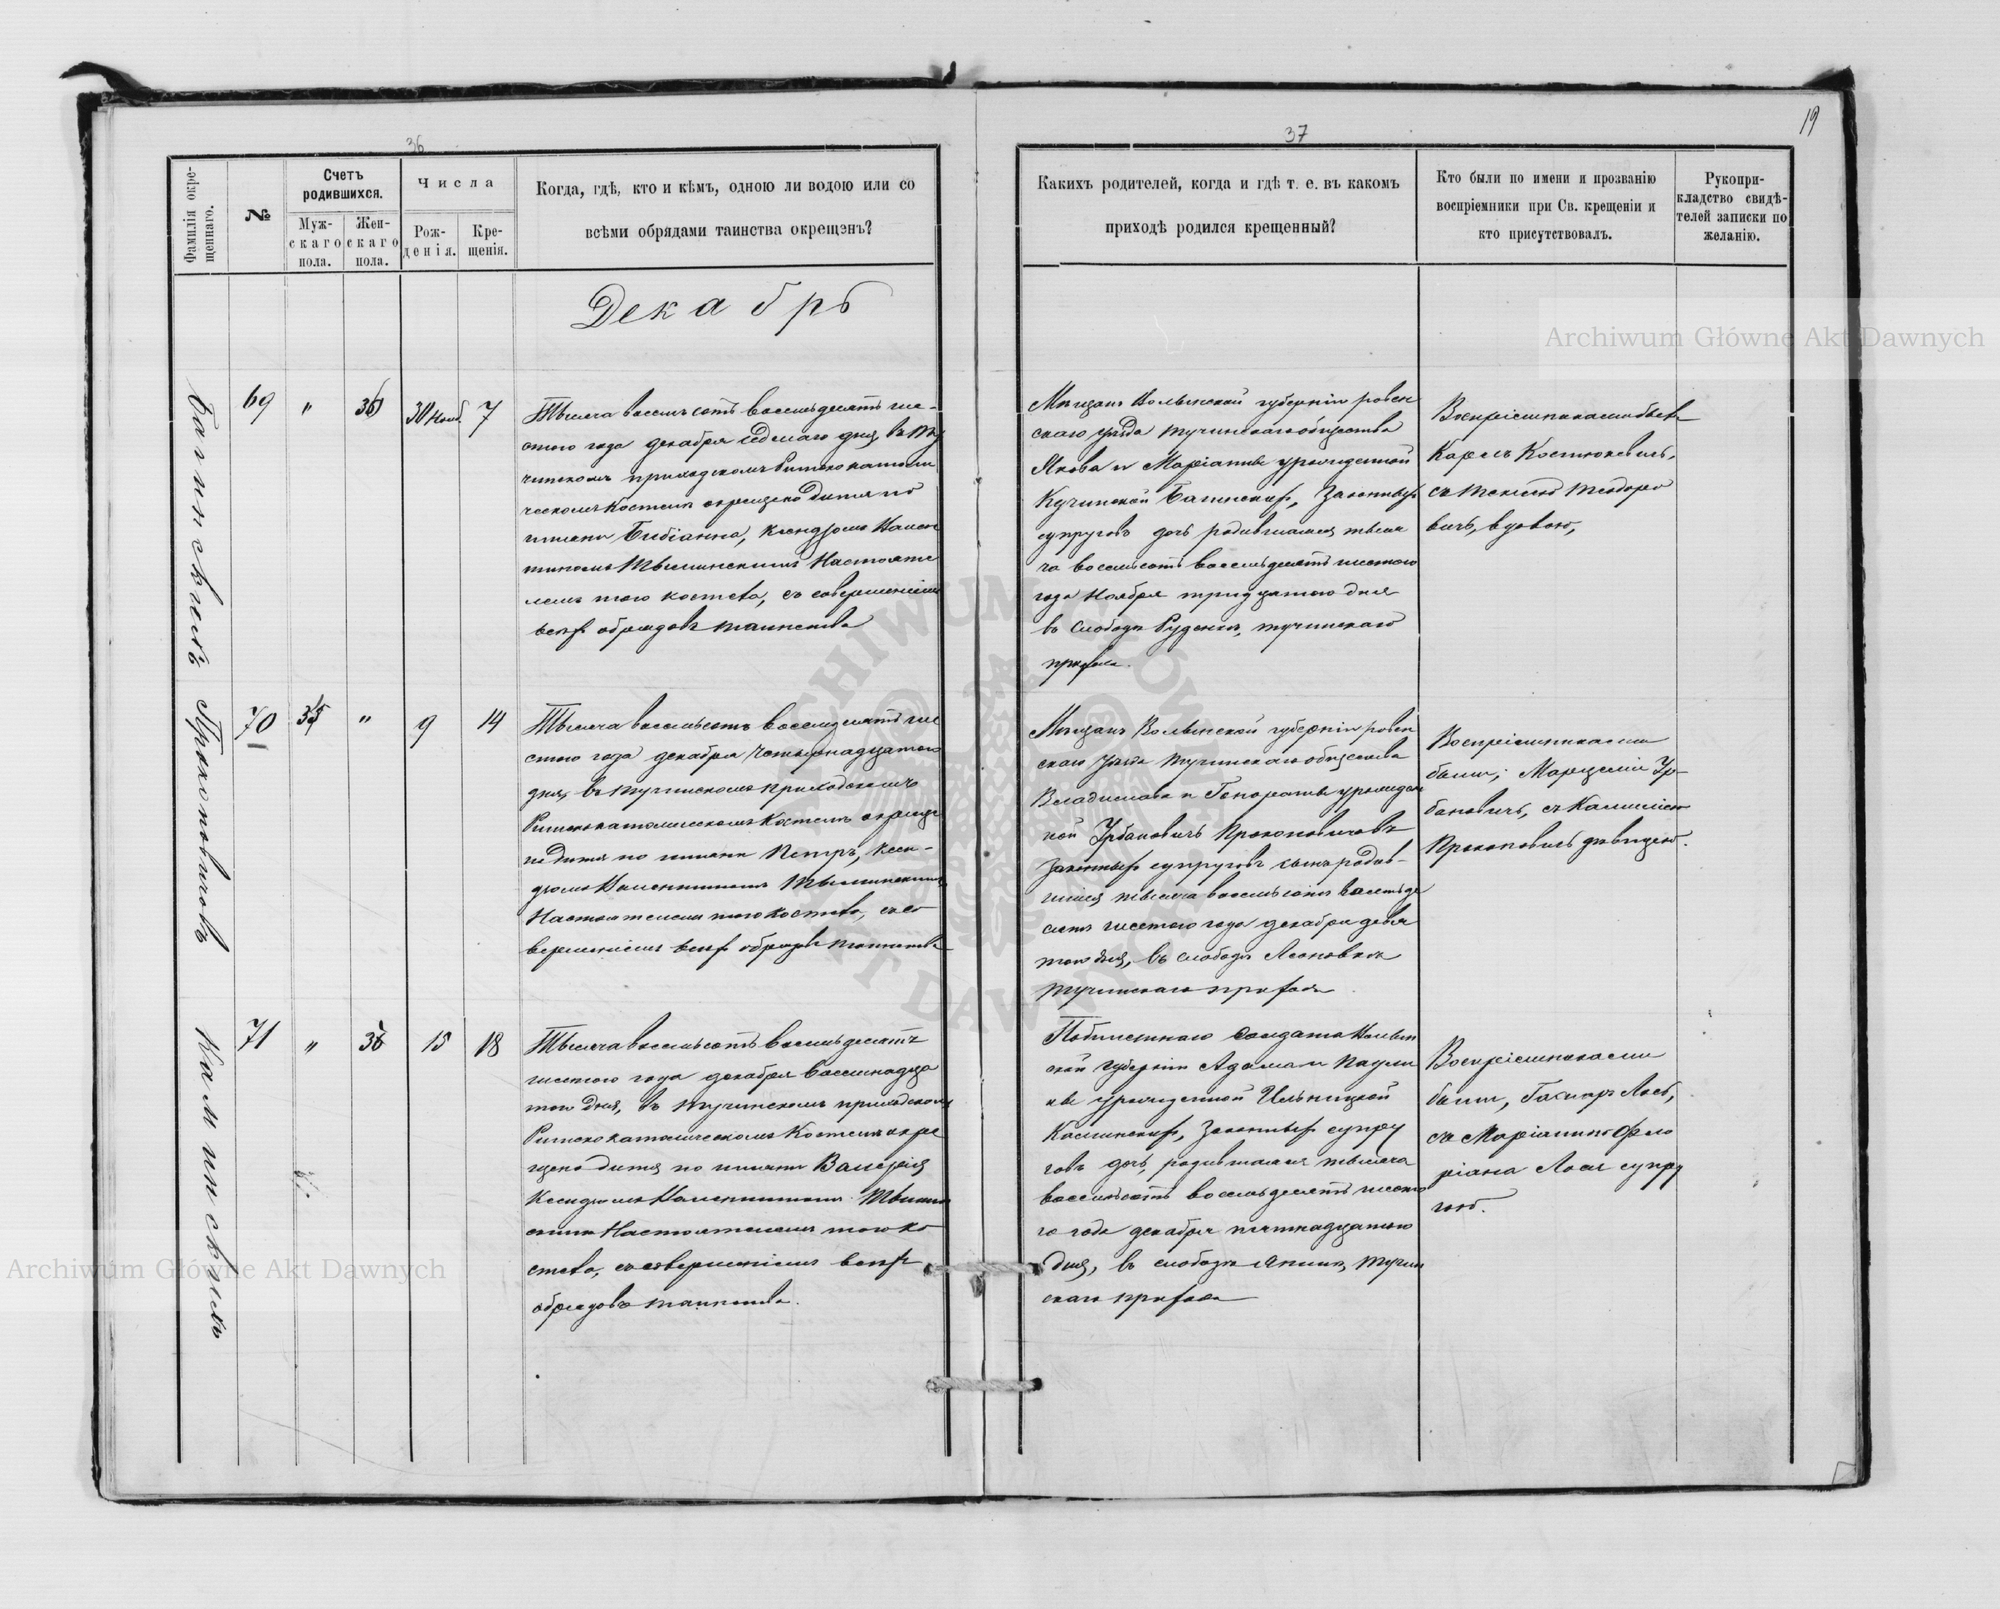 36
37
19
Фамилія окре-
щеннаго.
№
Счетъ
родившихся.
Муж-
скаго
пола.
Жен-
скаго
пола.
Числа
Рож-
денія.
Кре-
щенія.
Когда, гдѣ, кто и кѣмъ, одною ли водою или со
всѣми обрядами таинства окрещэнъ?
Каких родителей, когда и гдѣ т. е. въ какомъ
приходѣ родился крещенный?
Кто были по имени и прозванію
воспріемники при Св. крещеніи и
кто присутствовалъ.
Рукопри-
кладство свидѣ-
телей записки по
желанію.
Декабрь
69
"
30 Нояб.
7
Тысяча восемьсотъ восемьдесятъ ше-
стого года декабря седьмаго дня, въ Ту
чинскомъ приходскомъ Римско католи
ческомъ Костелѣ окрещено дитя по
имени Бибіанна, ксендзомъ Вален
тиномъ Твыминскимъ Настояте
лемъ того костела, съ совершеніемъ
всѣхъ обрядовъ таинства
Мѣщанъ Волынской губерніи ровен
скаго уѣзда тучинскаго общества
Якова и Маріанны урожденной
Кучинской Багинскихъ, законныхъ
супруговъ дочь родившаяся тыся
ча восемьсотъ восемьдесятъ шестого
года Ноября тридцатого дня
въ слободѣ Руденкѣ, тучинскаго
прихода.
Воспріемниками были
Кароль Костюкевичъ,
съ Теклею Теодоро
вичъ, вдовою,
70
35
"
9
14
Прокоповичовъ
Тысяча восемьсотъ восемьдесятъ ше
стого года декабря четырнадцатого
дня, въ тучинскомъ приходскомъ
Римско католическомъ Костелѣ окреще
но дитя по имени Петръ, ксен-
дзомъ Валентиномъ Твыминскимъ,
Настоятелемъ того костела, съ со
вершеніемъ всѣхъ обрядовъ таинства
Мѣщанъ Волынской губерніи ровен
скаго уѣзда тучинскаго общества
Владислава и Гонораты урожден
ной Урбановичъ Прокоповичовъ
законныхъ супруговъ сынъ родив-
шійся тысяча восемьсотъ восемьде
сятъ шестого года декабря девя
того дня, въ слободѣ Ясеновкѣ
тучинскаго прихода
Воспріемниками
были, Марцелій Ур-
бановичъ, съ Камиліею
Прокоповичъ дѣвицею.
71
"
15
18
Каминскихъ
Тысяча восемьсотъ восемьдесятъ
шестого года декабря восемнадца
того дня, въ тучинскомъ приходскомъ
Римско католическомъ Костелѣ окре
щено дитя по имени Валерія
Ксендзомъ Валентиномъ Твымин
скимъ Настоятелемъ того ко
стела, съ совершеніемъ всѣхъ
обрядовъ таинства.
солдата Волын
ской губерніи Адама и Паули
ны урожденной Ильницкой
Каминскихъ, законныхъ супру
говъ дочь, родившаяся тысяча
восемьсотъ восемьдесятъ шесто
го года декабря пятнадцатого
дня, въ слободѣ тучин
скаго прихода
Воспріемниками
были, Гаспаръ Лось,
съ Маріанною Фло
ріана Лося супру
гою.
Archiwum Główne Akt Dawnych
Archiwum Główne Akt Dawnych
ARCHIWUM GŁÓWNE AKT DAWNYCH